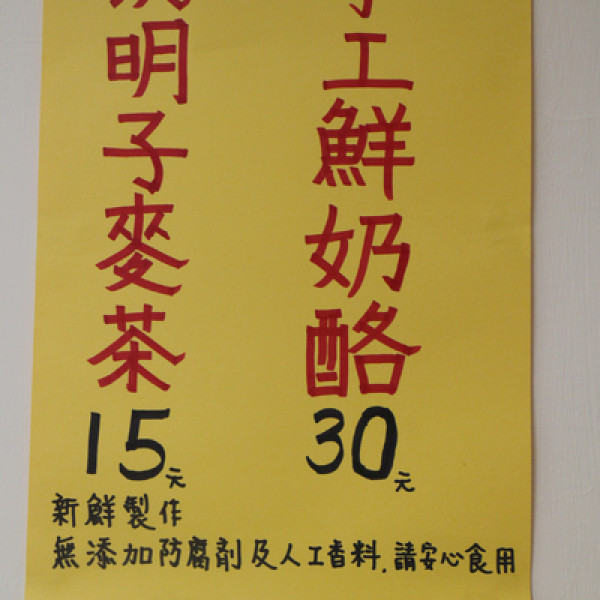 手工鮮奶酪
30元
決明子麥茶
15元
新鮮製作
無添加防腐劑及人工香料.請安心食用